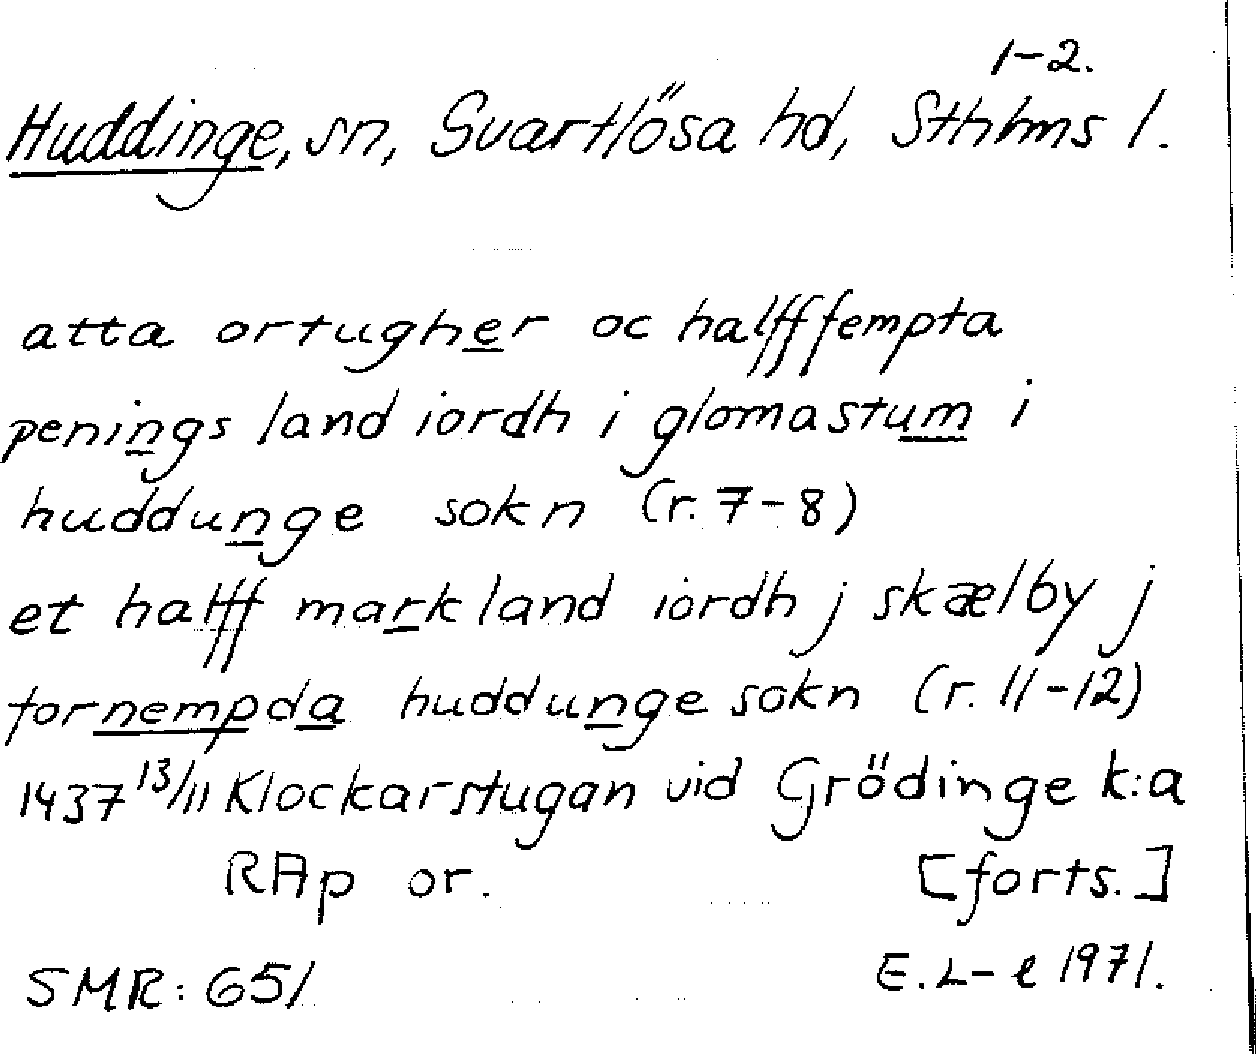 1-2.
Huddinge, sn, Svartlösa hd, Sthlms l.
atta ortugher oc halff fempta
penings land iordh i glomastum i
huddunge sokn (r. 7-8)
et halff markland iordh j skælby j
fornempda huddunge sokn (r. 11-12)
1437 13/11 Klockarstugan vid Grödinge k:a
RAp or. [forts.]
SMR: 651 E.L-e 1971.